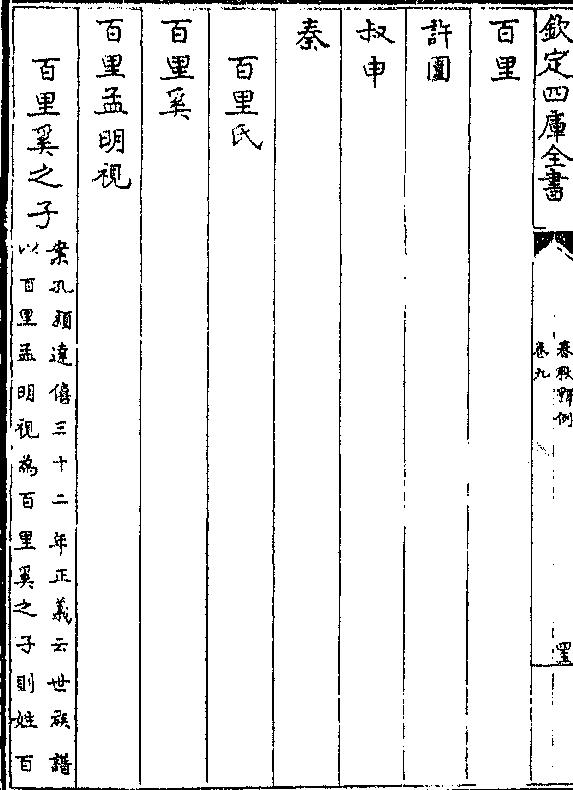 欽定四庫全書
春秋釋例
卷九
百里
許圍
叔申
秦
百里氏
百里奚
百里孟明視
百里奚之子
案孔穎達僖三十二年正義云世族譜
以百里孟明視為百里奚之子則姓百